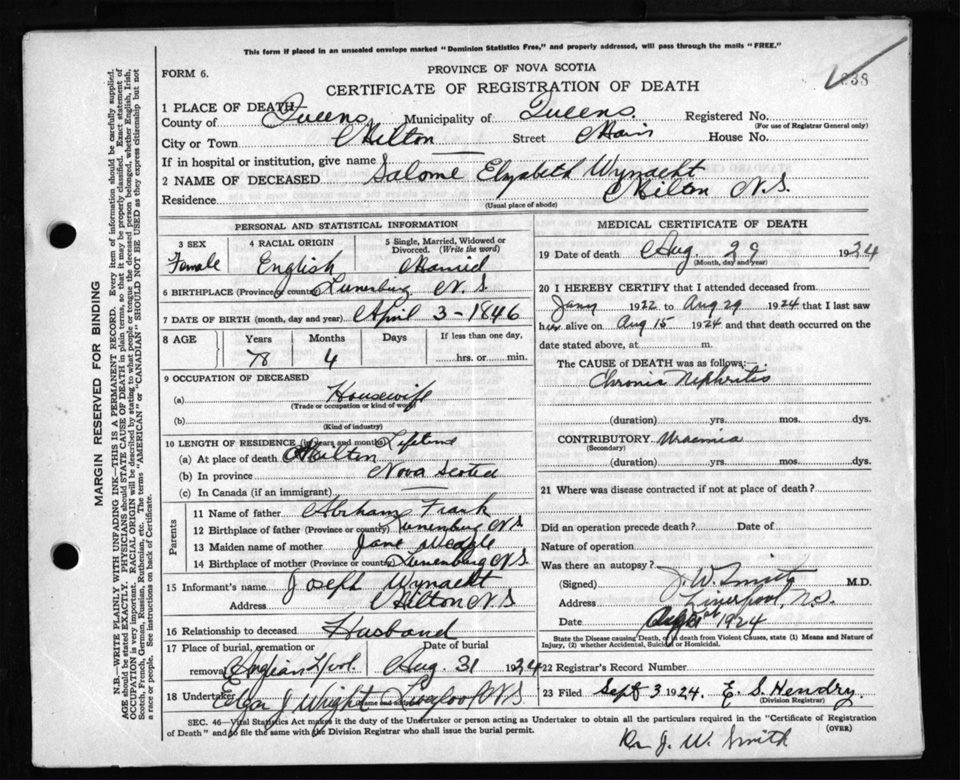 This form if placed in an unsealed envelope marked "Dominion Statistics Free," and properly addressed, will pass through the mails "FREE."
FORM 6.
PROVINCE OF NOVA SCOTIA
238
CERTIFICATE OF REGISTRATION OF DEATH
1 PLACE OF DEATH—
County of Queens Municipality of Queens. Registered No.
(For use of Registrar General only)
City or Town Milton Street Main House No.
If in hospital or institution, give name
2 NAME OF DECEASED Salome Elizabeth Wynacht
Residence Milton N.S.
(Usual place of abode)
PERSONAL AND STATISTICAL INFORMATION
3 SEX
Female
4 RACIAL ORIGIN
English
5 Single, Married, Widowed or Divorced. (Write the word)
Married
6 BIRTHPLACE (Province or county) Lunenburg N.S.
7 DATE OF BIRTH (month, day and year) April 3-1846
8 AGE
Years Months Days If less than one day,
78 4 hrs. or min.
9 OCCUPATION OF DECEASED
(a) Housewife
(Trade or occupation or kind of work)
(b)
(Kind of industry)
10 LENGTH OF RESIDENCE (in years and months) Lifetime
(a) At place of death Milton
(b) In province Nova Scotia
(c) In Canada (if an immigrant)
Parents
11 Name of father Abraham Frank
12 Birthplace of father (Province or country) Lunenburg NS
13 Maiden name of mother Jane
14 Birthplace of mother (Province or country) Lunenburg N.S.
15 Informant's name Joseph Wynacht
Address Milton N.S.
16 Relationship to deceased Husband
17 Place of burial, cremation or removal Date of burial
Aug. 31 1924
18 Undertaker J Wright Liverpool N.S.
(Name and address)
MEDICAL CERTIFICATE OF DEATH
19 Date of death Aug. 29 1924
(Month, day and year)
20 I HEREBY CERTIFY that I attended deceased from
Jany 1922 to Aug 29 1924 that I last saw
her alive on Aug 15 1924 and that death occurred on the
date stated above, at m.
The CAUSE of DEATH was as follows:—
Chronic Nephritis
(duration) yrs. mos. dys.
CONTRIBUTORY Uraemia
(Secondary)
(duration) yrs. mos. dys.
21 Where was disease contracted if not at place of death?
Did an operation precede death? Date of
Nature of operation
Was there an autopsy?
(Signed) J. W. Smith M.D.
Address Liverpool, N.S.
Date 1924
State the Disease causing Death, or in death from Violent Causes, state (1) Means and Nature of Injury, (2) whether Accidental, Suicidal or Homicidal.
22 Registrar's Record Number
23 Filed Sept 3 1924. E. S. Hendry.
(Division Registrar)
SEC. 46—Vital Statistics Act makes it the duty of the Undertaker or person acting as Undertaker to obtain all the particulars required in the "Certificate of Registration
of Death" and to file the same with the Division Registrar who shall issue the burial permit.
(OVER)
J. W. Smith
MARGIN RESERVED FOR BINDING
N.B.—WRITE PLAINLY WITH UNFADING INK—THIS IS A PERMANENT RECORD. Every item of information should be carefully supplied.
AGE should be stated EXACTLY. PHYSICIANS should STATE CAUSE OF DEATH in plain terms, so that it may be properly classified. Exact statement of
OCCUPATION is very important. RACIAL ORIGIN will be described by stating to what people or tongue the deceased person belonged, whether English, Irish,
Scotch, French, German, Russian, Ruthenian, etc. The terms "AMERICAN" or "CANADIAN" SHOULD NOT BE USED as they express citizenship but not
a race or people. See instructions on back of Certificate.